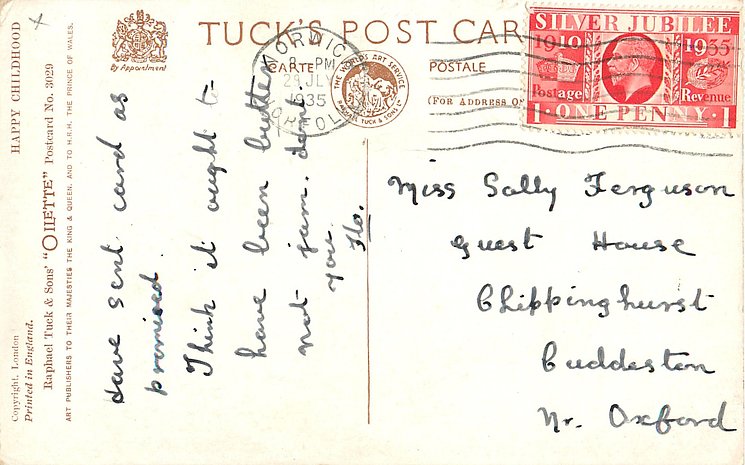 HAPPY CHILDHOOD
Copyright, London
Printed in England.
Raphael Tuck & Sons' "OILETTE" Postcard No. 3029
ART PUBLISHERS TO THEIR MAJESTIES THE KING & QUEEN, AND TO H.R.H. THE PRINCE OF WALES.
By Appointment
TUCK'S POST CARD
CARTE POSTALE
(FOR ADDRESS
THE WORLD'S ART SERVICE
RAPHAEL TUCK & SONS LTD
NORWICH
8 PM
JLY
1935
NORFOLK
SILVER JUBILEE
1910 1935
Postage Revenue
1 · ONE PENNY · 1
Have sent card as
promised.
Think it ought to
have been butter
not jam. don't
you.
Flo.
Miss Sally Ferguson
Guest House
Chippinghurst
Cuddeston
Nr. Oxford